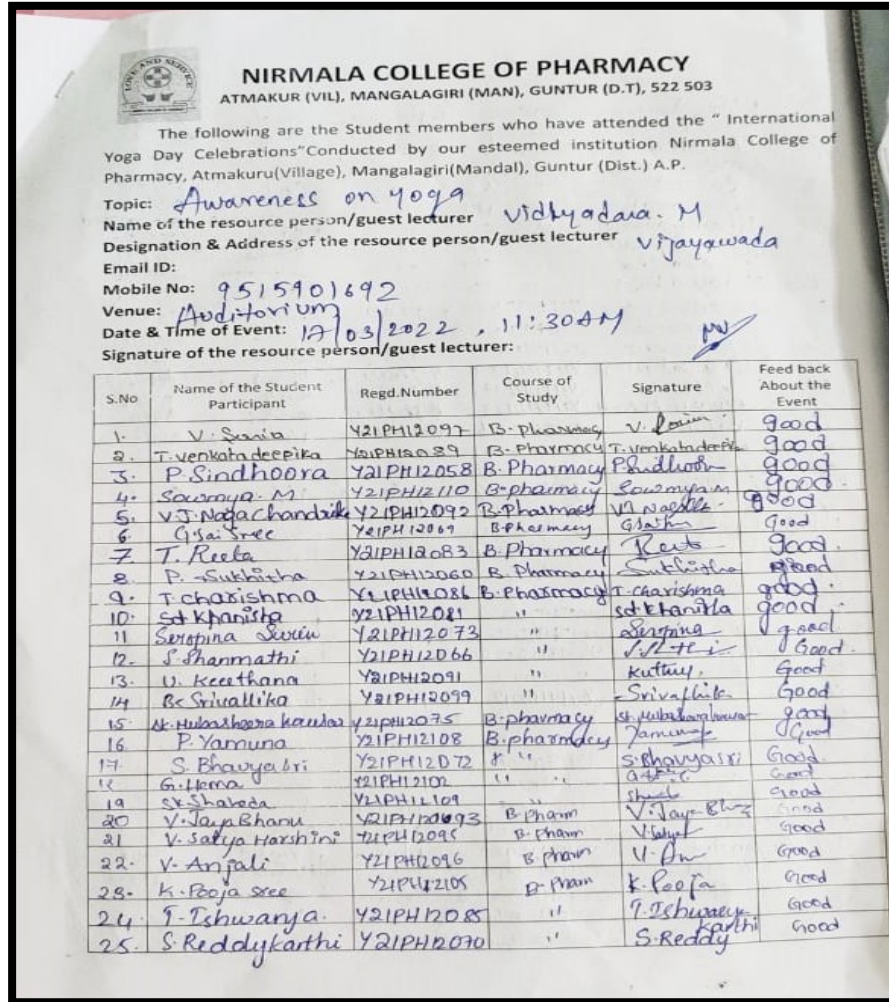 LOVE AND SERVICE
NIRMALA COLLEGE OF PHARMACY
ATMAKUR (VIL), MANGALAGIRI (MAN), GUNTUR (D.T), 522 503
The following are the Student members who have attended the “ International
Yoga Day Celebrations”Conducted by our esteemed institution Nirmala College of
Pharmacy, Atmakuru(Village), Mangalagiri(Mandal), Guntur (Dist.) A.P.
Topic: Awareness on yoga
Name of the resource person/guest lecturer Vidhyadara. M
Designation & Address of the resource person/guest lecturer Vijayawada
Email ID:
Mobile No: 9515901692
Venue: Auditorium
Date & Time of Event: 17/03/2022 , 11:30AM
Signature of the resource person/guest lecturer:
S.No Name of the Student Participant Regd.Number Course of Study Signature Feed back About the Event
1. V. Y21PH12097 B-pharmacy V. good
2. T. venkata deepika Y21PH12089 B-Pharmacy T. venkatadeepika good
3. P. Sindhoora Y21PH12058 B. Pharmacy P. Sindhoor good
4. Sowmya. M Y21PH12110 B-pharmacy Sowmya.M good
5. V.J. Naga Chandrika Y21PH12092 B.Pharmacy good
6 G.Sai Sree Y21PH12069 B.Pharmacy Good
7. T. Reeta Y21PH12083 B. Pharmacy good.
8. P. Sukhitha Y21PH12060 B. Pharmacy Sukhitha good
9. T. charishma Y21PH12086 B. Pharmacy T. charishma good.
10. Sd. Khanisha Y21PH12081 " good
11 Seropina Y21PH12073 " Seropina good
12. S. Shanmathi Y21PH12066 " Good.
13. U. Keerthana Y21PH12091 " Good
14 B. Srivallika Y21PH12099 " Srivallika Good
15. Sk. Mubasheera kawsar Y21PH12075 B.pharmacy good
16. P. Yamuna Y21PH12108 B.pharmacy Yamuna Good
17. S. Bhavyasri Y21PH12072 " S. Bhavyasri Good.
18 G. Hema Y21PH12102 " Good
19 Sk Shaheda Y21PH12109 " Good
20 V. Jaya Bhanu Y21PH120693 B. Pharm Good
21 V. Satya Harshini Y21PH12095 B. Pharm Good
22. V. Anjali Y21PH12096 B. pharm Good
23. K. Pooja sree Y21PH12105 B- Pham K. Pooja Good
24. T. Ishwarya. Y21PH12085 " T. Ishwarya Good
25. S. Reddykarthi Y21PH12070 " S. Reddy karthi Good